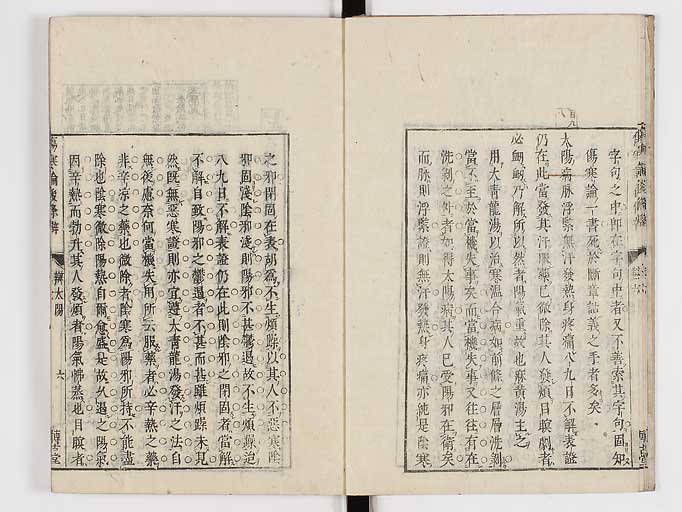 字句之中即在字句中者又不善索其字句固知
傷寒論一書死於斷章詁義之手者多矣
太陽病脉浮緊無汗發熱身疼痛八九日不解表證
仍在此當發其汗服藥已微除其人發煩目瞑劇者
必衂衂乃解所以然者陽氣重故也麻黃湯主之
用大青龍湯以治寒溫合病如前條之層層洗剝
當不至於當機失事矣而當機失事又往往有在
洗剝之外者如得太陽病其人已受陽邪在衛矣
而脉則浮緊證則無汗發熱身疼痛亦純是陰寒
之邪閉固在表胡爲不生煩躁以其人不惡寒陰
邪固淺陰邪淺則陽邪不甚鬱遏故不生煩躁迨
八九日不解表證仍在此則陰邪之閉固者當解
不解自致陽邪之鬱遏者不甚而甚雖煩躁未見
然既無惡寒證則亦宜遵大青龍湯發汗之法自
無後慮奈何當機失用所云服藥者必辛熱之藥
非辛涼之藥也微除者陰寒爲陽邪所持不能盡
除也陰寒微除陽熱自爾愈盛是故久遏之陽氣
因辛熱而勃升其人發煩者陽氣怫蒸也目瞑者
傷寒論後條辨
辨太陽
六